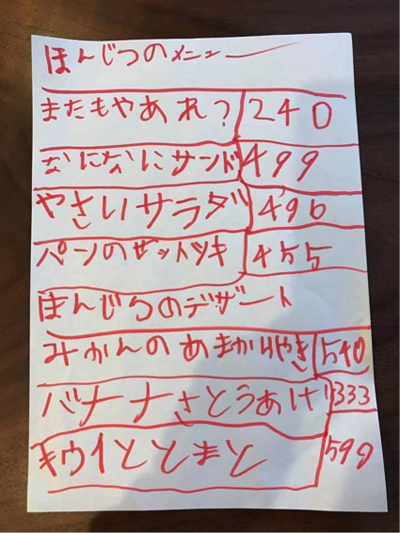 ほんじつのメニュー
またもやあれ？ 240
なになにサンド 499
やさいサラダ 496
パンのセットツキ 455
ほんじつのデザート
みかんのあまかりやき 540
バナナさとうあげ 333
キウイととまと 599